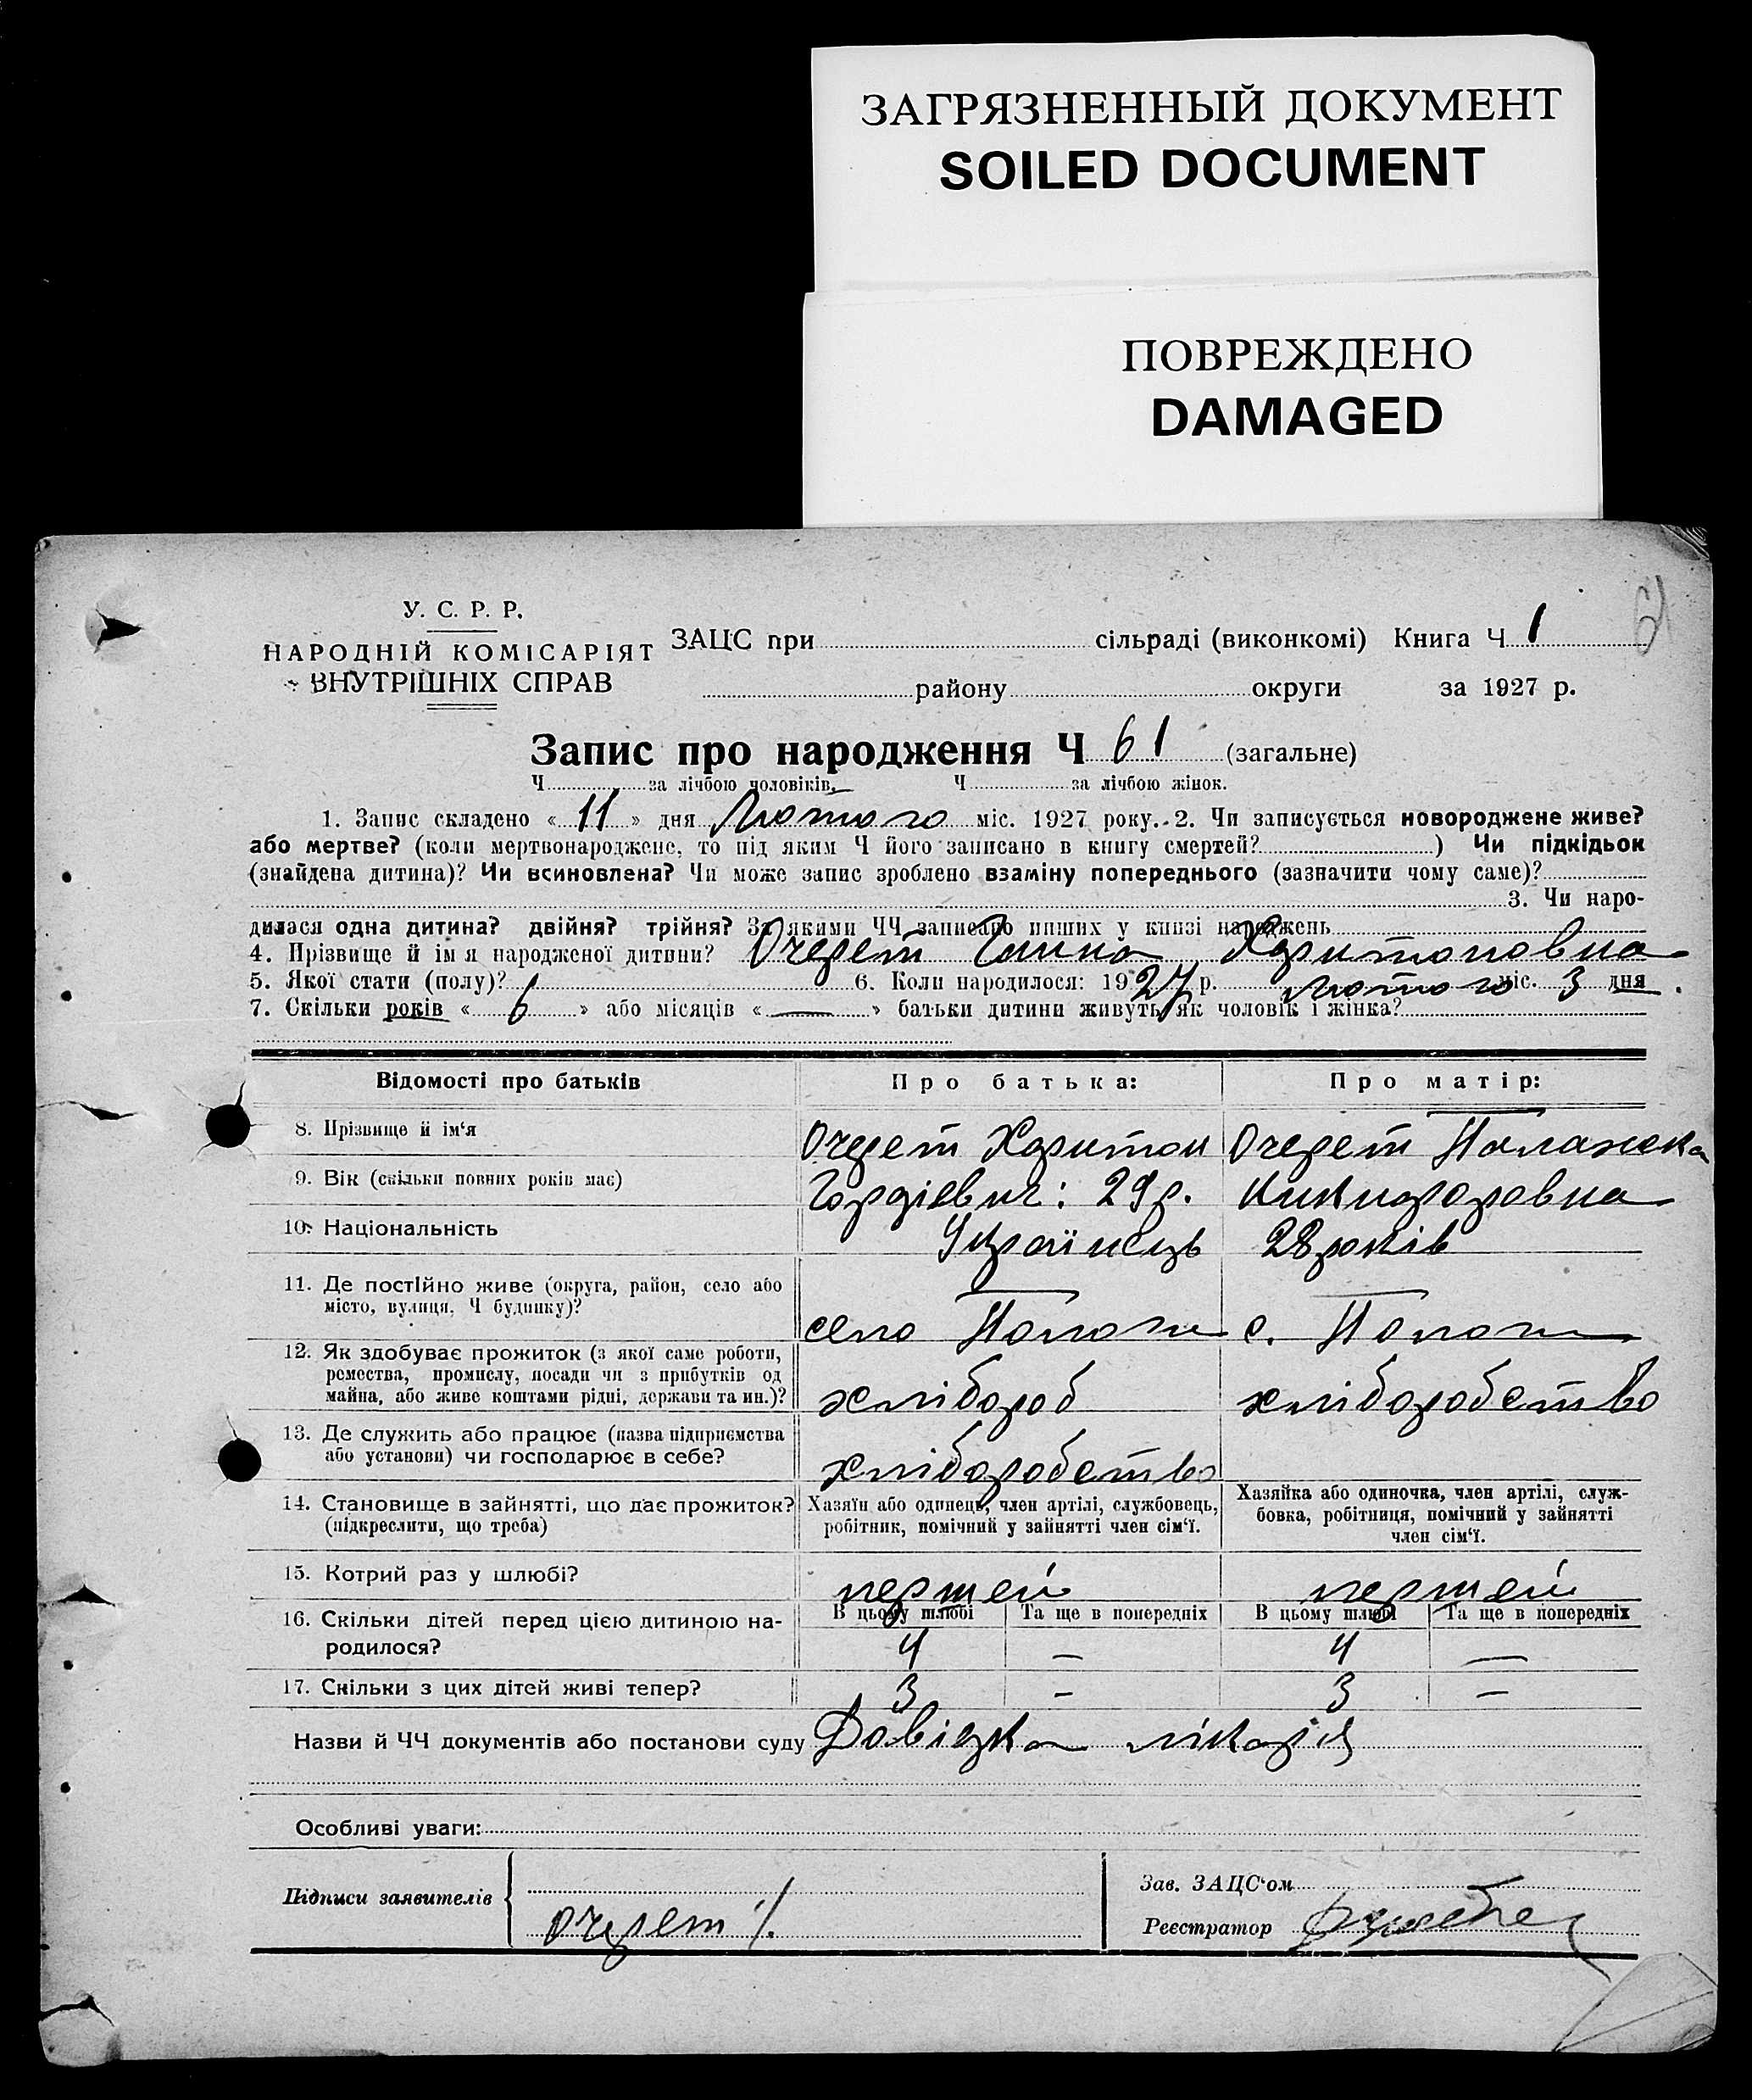 ЗАГРЯЗНЕННЫЙ ДОКУМЕНТ
SOILED DOCUMENT
ПОВРЕЖДЕНО
DAMAGED
61
У. С. Р. Р.
НАРОДНІЙ КОМІСАРІЯТ
ВНУТРІШНІХ СПРАВ
ЗАЦС при сільраді (виконкомі) Книга Ч 1
району округи за 1927 р.
Запис про народження Ч 61 (загальне)
Ч за лічбою чоловіків. Ч за лічбою жінок.
1. Запис складено « 11 » дня Лютого міс. 1927 року. 2. Чи записується новороджене живе?
або мертве? (коли мертвонароджене, то під яким Ч його записано в книгу смертей? ) Чи підкідьок
(знайдена дитина)? Чи всиновлена? Чи може запис зроблено взаміну попереднього (зазначити чому саме)?
3. Чи наро-
дилася одна дитина? двійня? трійня? За якими ЧЧ записано инших у книзі народжень
4. Прізвище й ім я народженої дитини? Очерет Ганна Харитоновна
5. Якої стати (полу)? 6. Коли народилося: 1927 р. Лютого міс. 3 дня
7. Скільки років « 6 » або місяців « — » батьки дитини живуть як чоловік і жінка?
Відомості про батьків Про батька: Про матір:
8. Прізвище й ім'я Очерет Харитон Очерет Палажка
9. Вік (скільки повних років має) Гордієвич: 29 р. Никифоровна
10. Національність Українець 28 років
11. Де постійно живе (округа, район, село або
місто, вулиця, Ч будинку)? село Пологи с. Пологи
12. Як здобуває прожиток (з якої саме роботи,
ремества, промислу, посади чи з прибутків од
майна, або живе коштами рідні, держави та ин.)? хлібороб хліборобство
13. Де служить або працює (назва підприємства
або установи) чи господарює в себе? хліборобство
14. Становище в зайнятті, що дає прожиток?
(підкреслити, що треба)
Хазяїн або одинець, член артілі, службовець,
робітник, помічний у зайнятті член сім'ї.
Хазяйка або одиночка, член артілі, служ-
бовка, робітниця, помічний у зайнятті
член сім'ї.
15. Котрий раз у шлюбі? першей першей
16. Скільки дітей перед цією дитиною на-
родилося?
В цьому шлюбі Та ще в попередніх В цьому шлюбі Та ще в попередніх
4 — 4 —
17. Скільки з цих дітей живі тепер? 3 — 3 —
Назви й ЧЧ документів або постанови суду Довідка лікаря
Особливі уваги:
Підписи заявителів Очерет
Зав. ЗАЦС'ом
Реєстратор